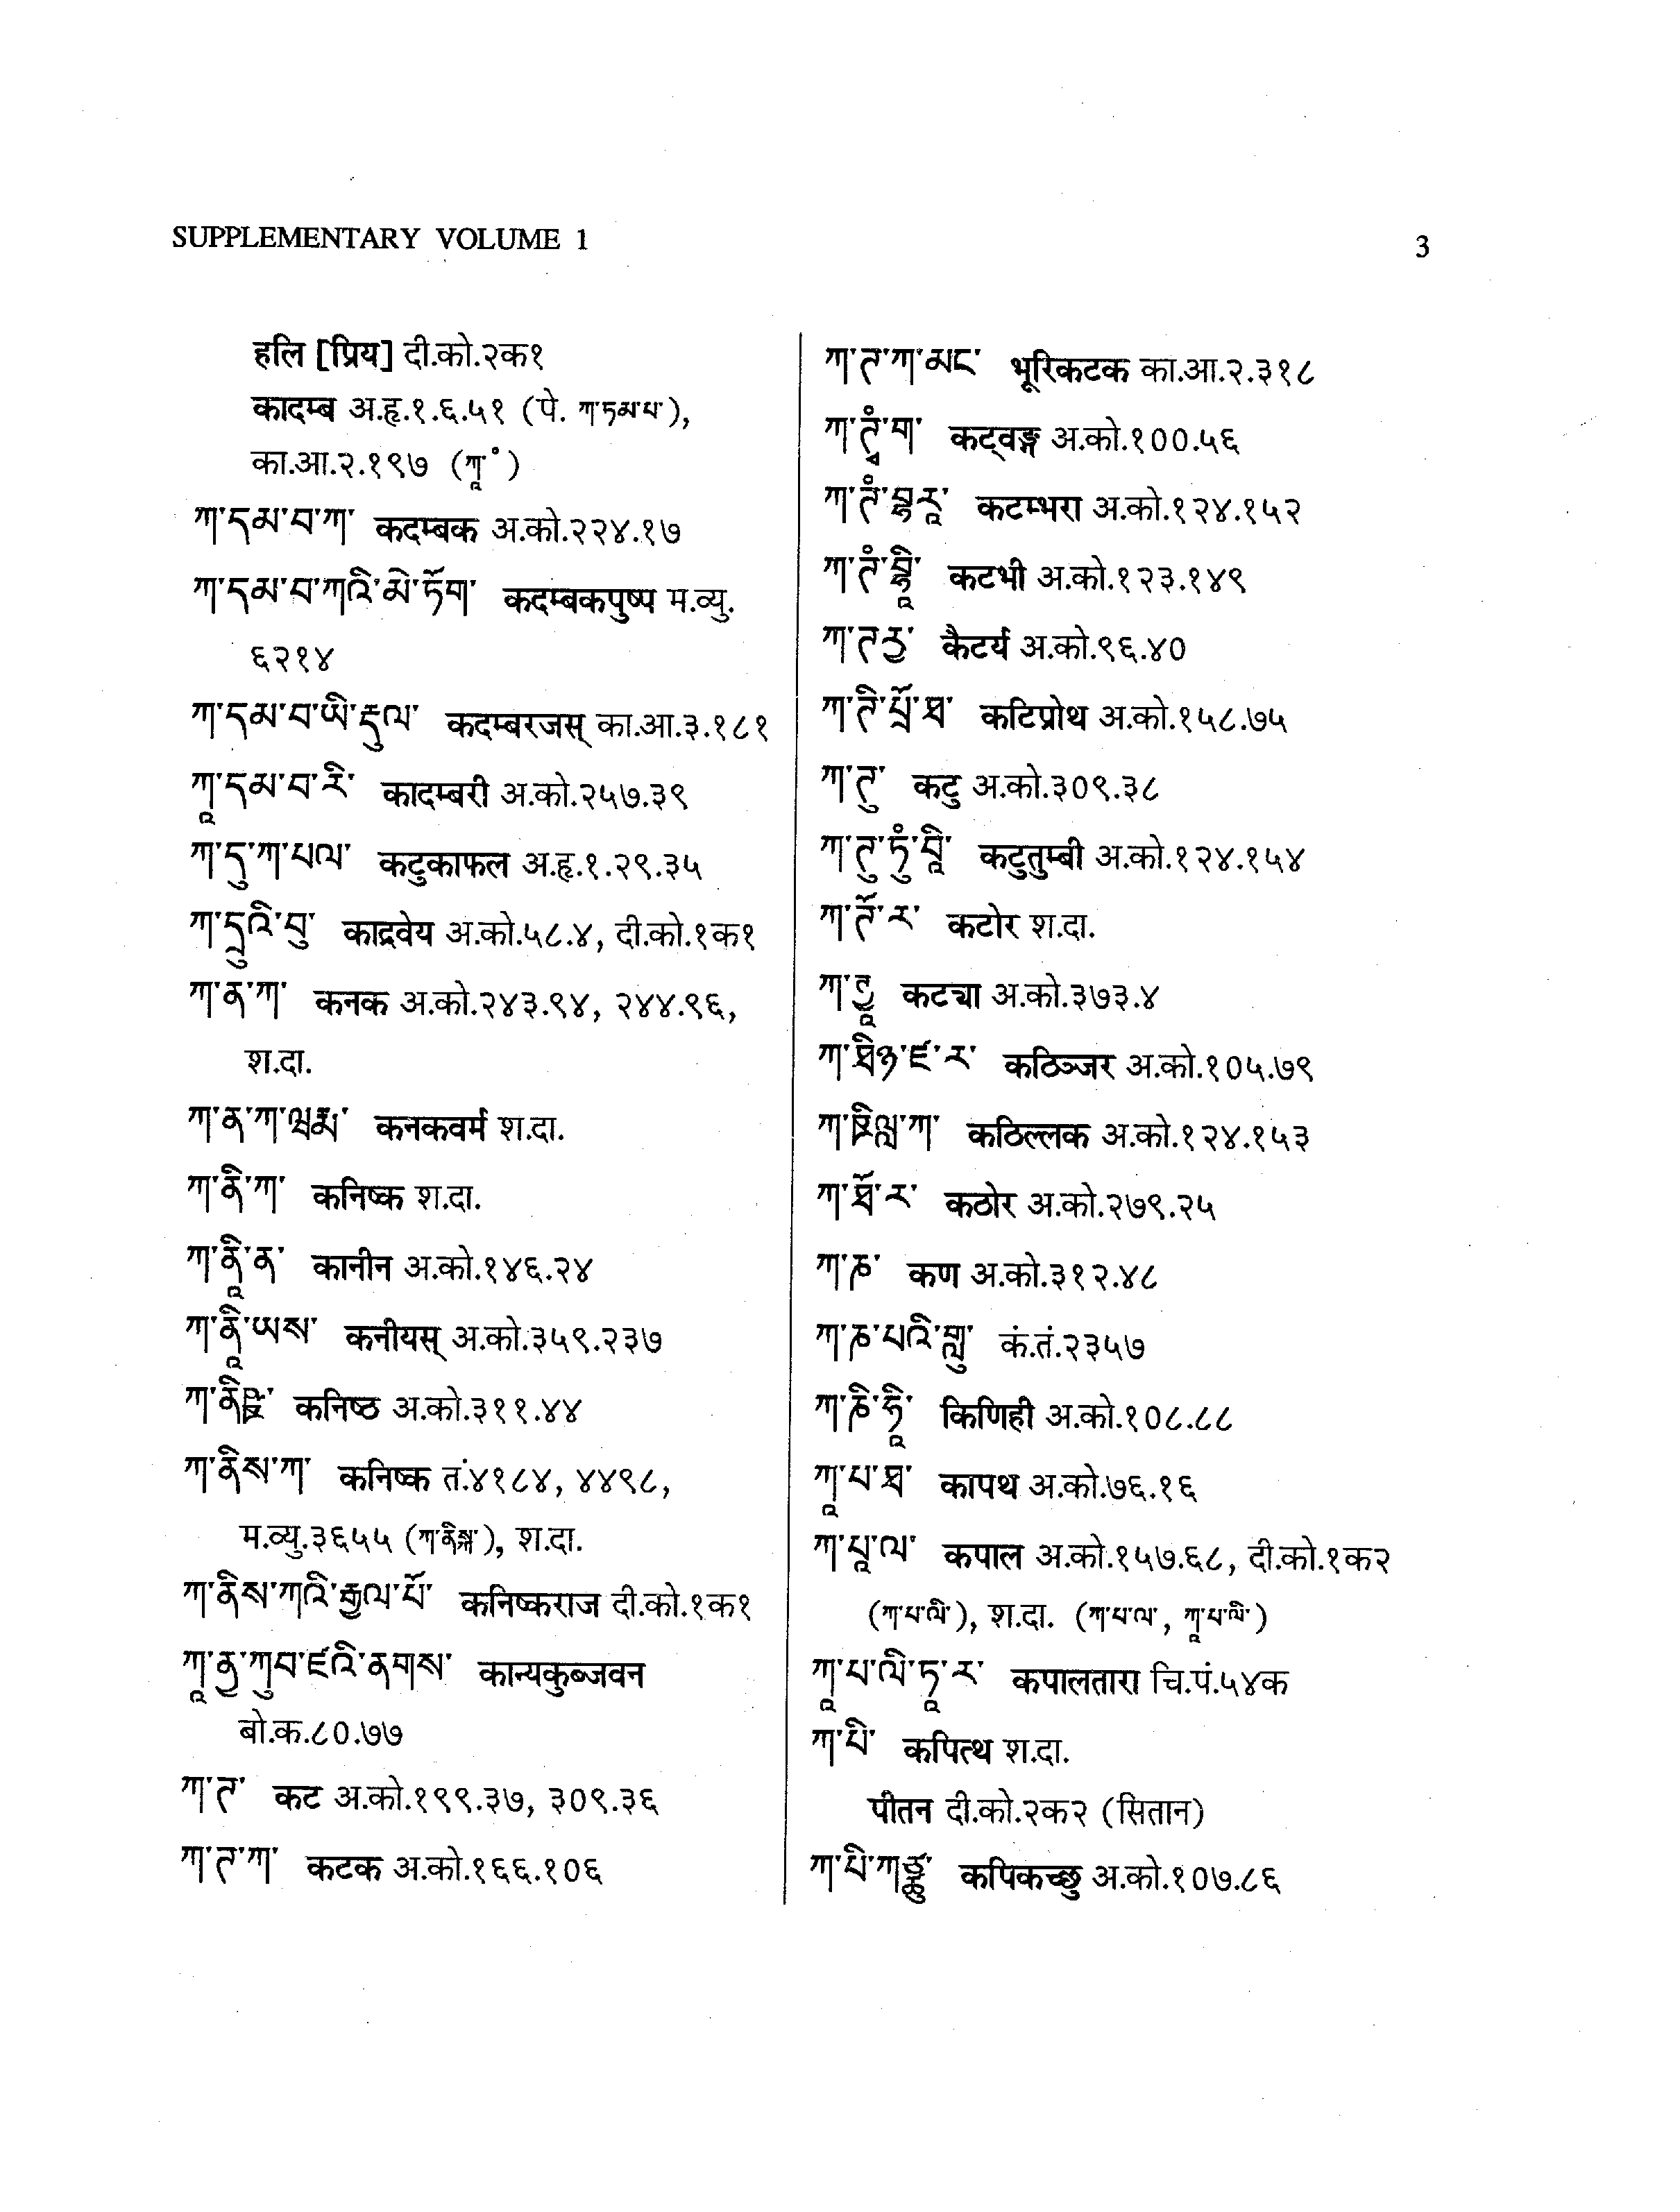 SUPPLEMENTARY VOLUME 1
3
हलि [प्रिय] दी.को.२क१
कादम्ब अ.हृ.१.६.५१ (पे. ཀ་ཏམ་པ་),
का.आ.२.१९७ (ཀཱ་°)
ཀ་དམ་བ་ཀ་ कदम्बक अ.को.२२४.१७
ཀ་དམ་བ་ཀའི་མེ་ཏོག་ कदम्बकपुष्प म.व्यु.
६२१४
ཀ་དམ་བ་ཡི་རྡུལ་ कदम्बरजस् का.आ.३.१८१
ཀཱ་དམ་བ་རི་ कादम्बरी अ.को.२५७.३९
ཀ་དུ་ཀ་པལ་ कटुकाफल अ.हृ.१.२९.३५
ཀ་དྲུའི་བུ་ काद्रवेय अ.को.५८.४, दी.को.१क१
ཀ་ན་ཀ་ कनक अ.को.२४३.९४, २४४.९६,
श.दा.
ཀ་ན་ཀ་ कनकवर्म श.दा.
ཀ་ནི་ཀ་ कनिष्क श.दा.
ཀ་ནཱི་ན་ कानीन अ.को.१४६.२४
ཀ་ནཱི་ཡས་ कनीयस् अ.को.३५९.२३७
ཀ་ནིཥྛ་ कनिष्ठ अ.को.३११.४४
ཀ་ནིས་ཀ་ कनिष्क तं.४१८४, ४४९८,
म.व्यु.३६५५ (ཀ་ནིསྐ་), श.दा.
ཀ་ནིས་ཀའི་རྒྱལ་པོ་ कनिष्कराज दी.को.१क१
ཀཱ་ནྱ་ཀུབ་ཛའི་ནགས་ कान्यकुब्जवन
बो.क.८०.७७
ཀ་ཊ་ कट अ.को.१९९.३७, ३०९.३६
ཀ་ཊ་ཀ་ कटक अ.को.१६६.१०६
ཀ་ཊ་ཀ་མང་ भूरिकटक का.आ.२.३१८
ཀ་ཊྭཾ་ག་ कट्वङ्ग अ.को.१००.५६
ཀ་ཊཾ་བྷརཱ་ कटम्भरा अ.को.१२४.१५२
ཀ་ཊཾ་བྷཱི་ कटभी अ.को.१२३.१४९
ཀ་ཊརྱ་ कैटर्य अ.को.९६.४०
ཀ་ཊི་པྲོ་ཐ་ कटिप्रोथ अ.को.१५८.७५
ཀ་ཊུ་ कटु अ.को.३०९.३८
ཀ་ཊུ་ཏུཾ་བཱི་ कटुतुम्बी अ.को.१२४.१५४
ཀ་ཊོ་ར་ कटोर श.दा.
ཀ་ཊྱཱ་ कटया अ.को.३७३.४
ཀ་ཐིཉ་ཛ་ར་ कठिञ्जर अ.को.१०५.७९
ཀ་ཋིལླ་ཀ་ कठिल्लक अ.को.१२४.१५३
ཀ་ཐོ་ར་ कठोर अ.को.२७९.२५
ཀ་ཎ་ कण अ.को.३१२.४८
ཀ་ཎ་པའི་གླུ་ कं.तं.२३५७
ཀ་ཎི་ཧཱི་ किणिही अ.को.१०८.८८
ཀཱ་པ་ཐ་ कापथ अ.को.७६.१६
ཀ་པཱ་ལ་ कपाल अ.को.१५७.६८, दी.को.१क२
(ཀ་པ་ལི་), श.दा. (ཀ་པ་ལ་, ཀཱ་པ་ལི་)
ཀཱ་པ་ལི་ཏཱ་ར་ कपालतारा चि.पं.५४क
ཀ་པི་ कपित्थ श.दा.
पीतन दी.को.२क२ (सितान)
ཀ་པི་ཀཙྪུ་ कपिकच्छु अ.को.१०७.८६